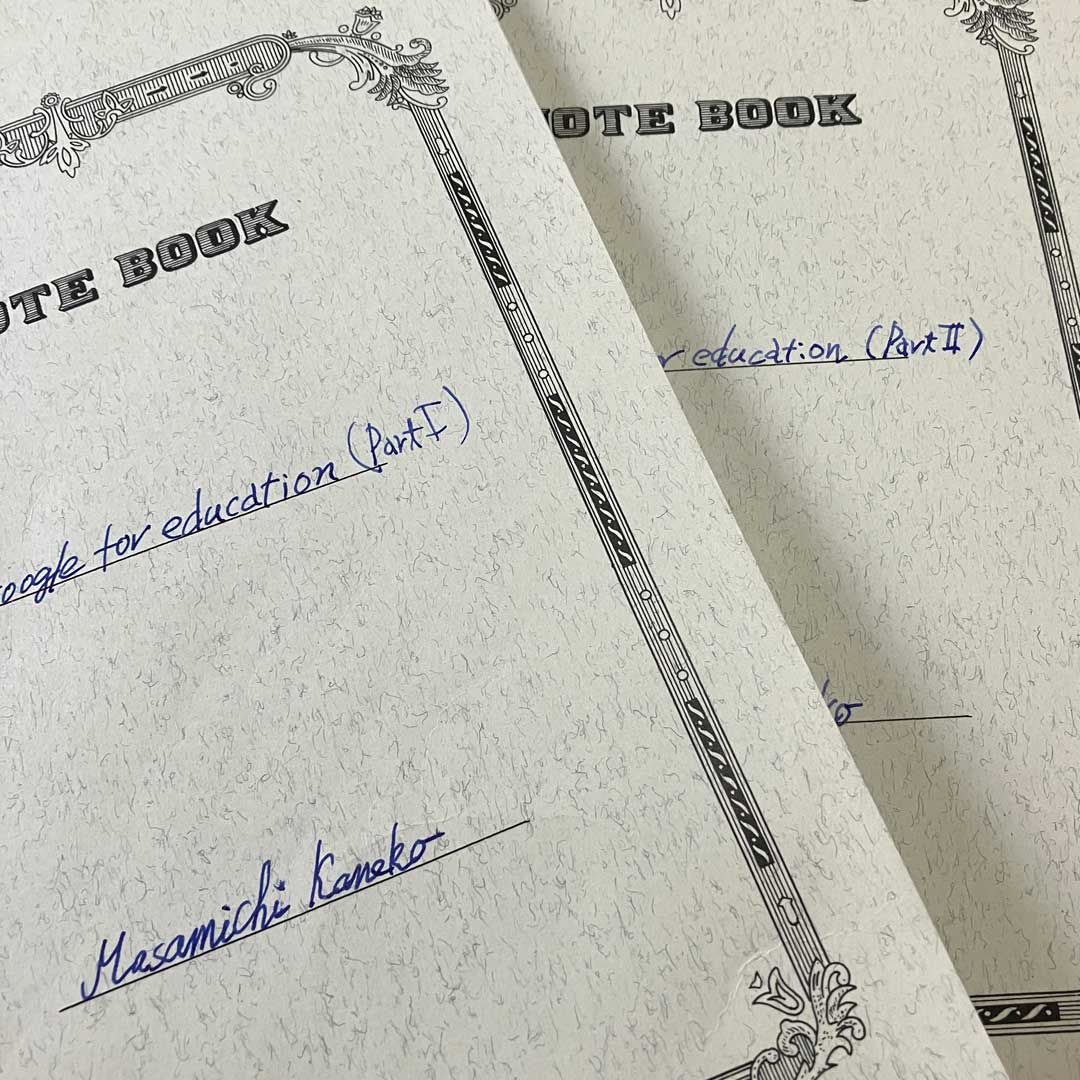 OTE BOOK
oogle for education (Part I)
Masamichi Kaneko
OTE BOOK
r education (Part II)
ko